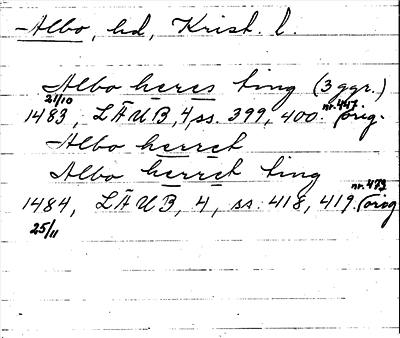 Albo, hd, Krist. l.
Albo heres ting (3 ggr.)
21/10 nr. 447
1483, LÄUB, 4, ss. 399, 400. Orig.
Albo herret
Albo herret ting
nr. 473
1484, LÄUB, 4, ss. 418, 419. Orig
25/11